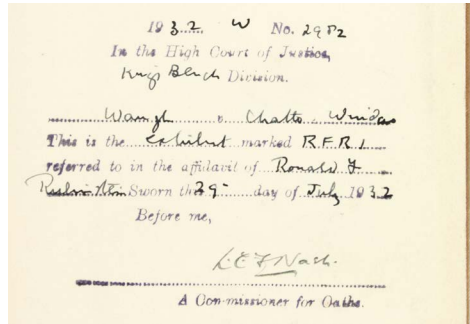 1932 W No. 2982
In the High Court of Justice,
King's Bench Division.
Waugh v Chatto & Windus
This is the Exhibit marked R.F.R.1
referred to in the affidavit of Ronald F
Sworn the 29 day of July 1932
Before me,
L.E.F. Nash.
A Commissioner for Oaths.